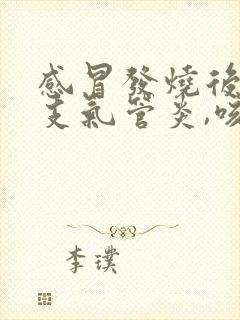 感冒發燒後
支氣管炎,咳
李璞